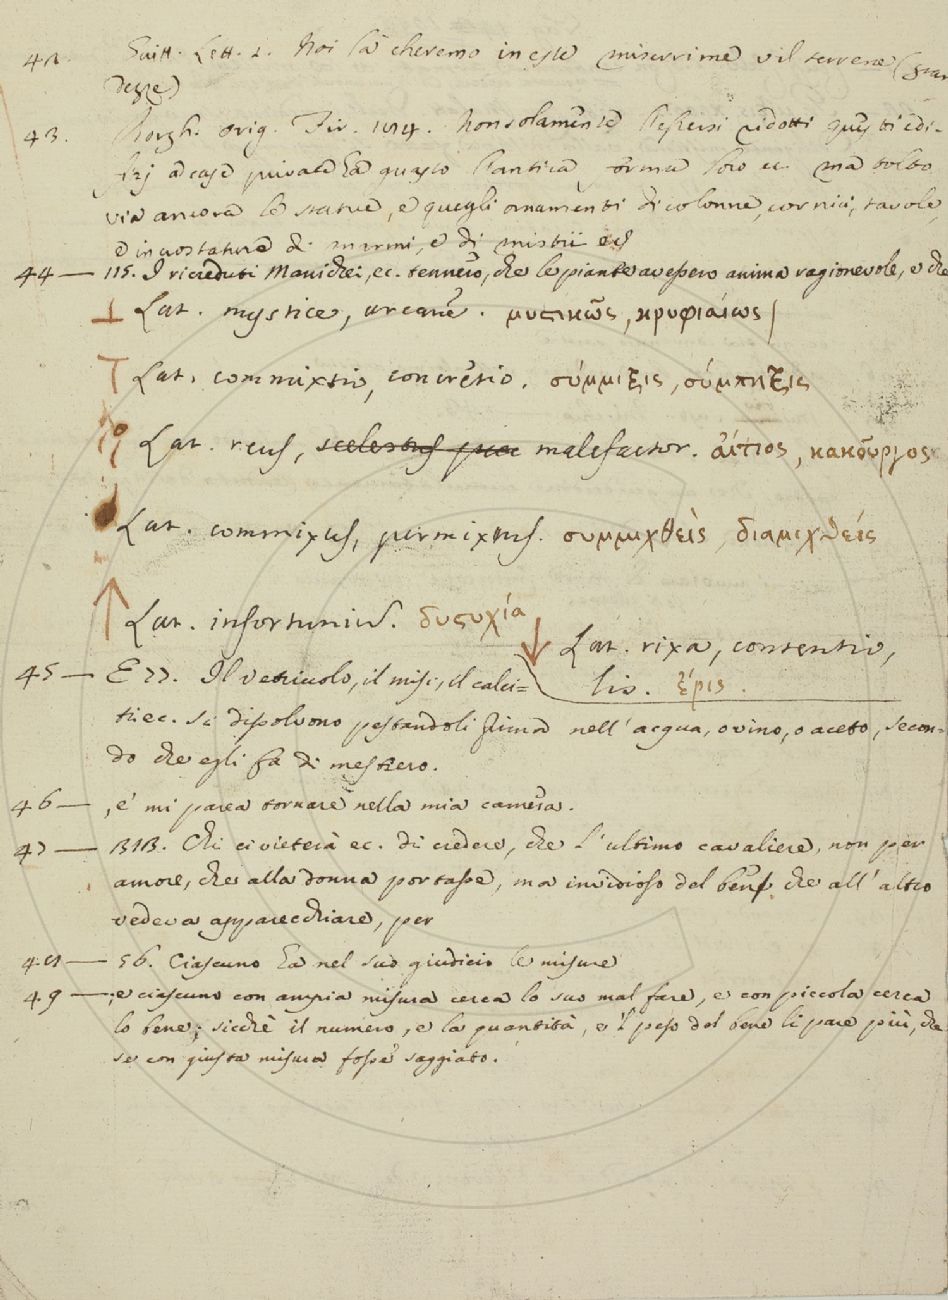 42. Guitt. Lett. 1. Noi là cheremo in este miserrime vil terrene (gran
dezze)
43. Borgh. Orig. Fir. 174. Non solamente l'essersi ridotti questi edi-
fizj a case private ha guasto l'antica forma loro ec. ma tolto
via ancora le statue, e quegli ornamenti di colonne, cornici, tavole,
e incrostature di marmi, e di mistii ec
44 — 115. I ricreduti Manichei, ec. tennero, che le piante avessero anima ragionevole, e che
⊥ Lat. mystice, arcane. μυστικῶς, κρυφιαίως
T Lat. commixtio, concretio. σύμμιξις, σύμπηξις
Lat. reus, malefactor. αἴτιος, κακοῦργος
Lat. commixtus, permixtus. συμμιχθείς, διαμιχθείς
↑ Lat. infortunium. δυστυχία
↓ Lat. rixa, contentio,
lis. ἔρις.
45 — E 77. Il vetriuolo, il misi, il calci=
ti ec. si dissolvono pestandoli prima nell' acqua, o vino, o aceto, secon-
do che egli fa di mestiero.
46 — , e' mi parea tornare nella mia camera.
47 — 313. Chi ci vieterà ec. di credere, che l'ultimo cavaliere, non per
amore, che alla donna portasse, ma invidioso del bene che all' altro
vedeva apparecchiare, per
48 — 56. Ciascuno ha nel suo giudicio le misure
49 — ; e ciascuno con ampia misura cerca lo suo mal fare, e con piccola cerca
lo bene; sicchè il numero, e la quantità, e 'l peso del bene li pare più, che
se con giusta misura fosse saggiato.